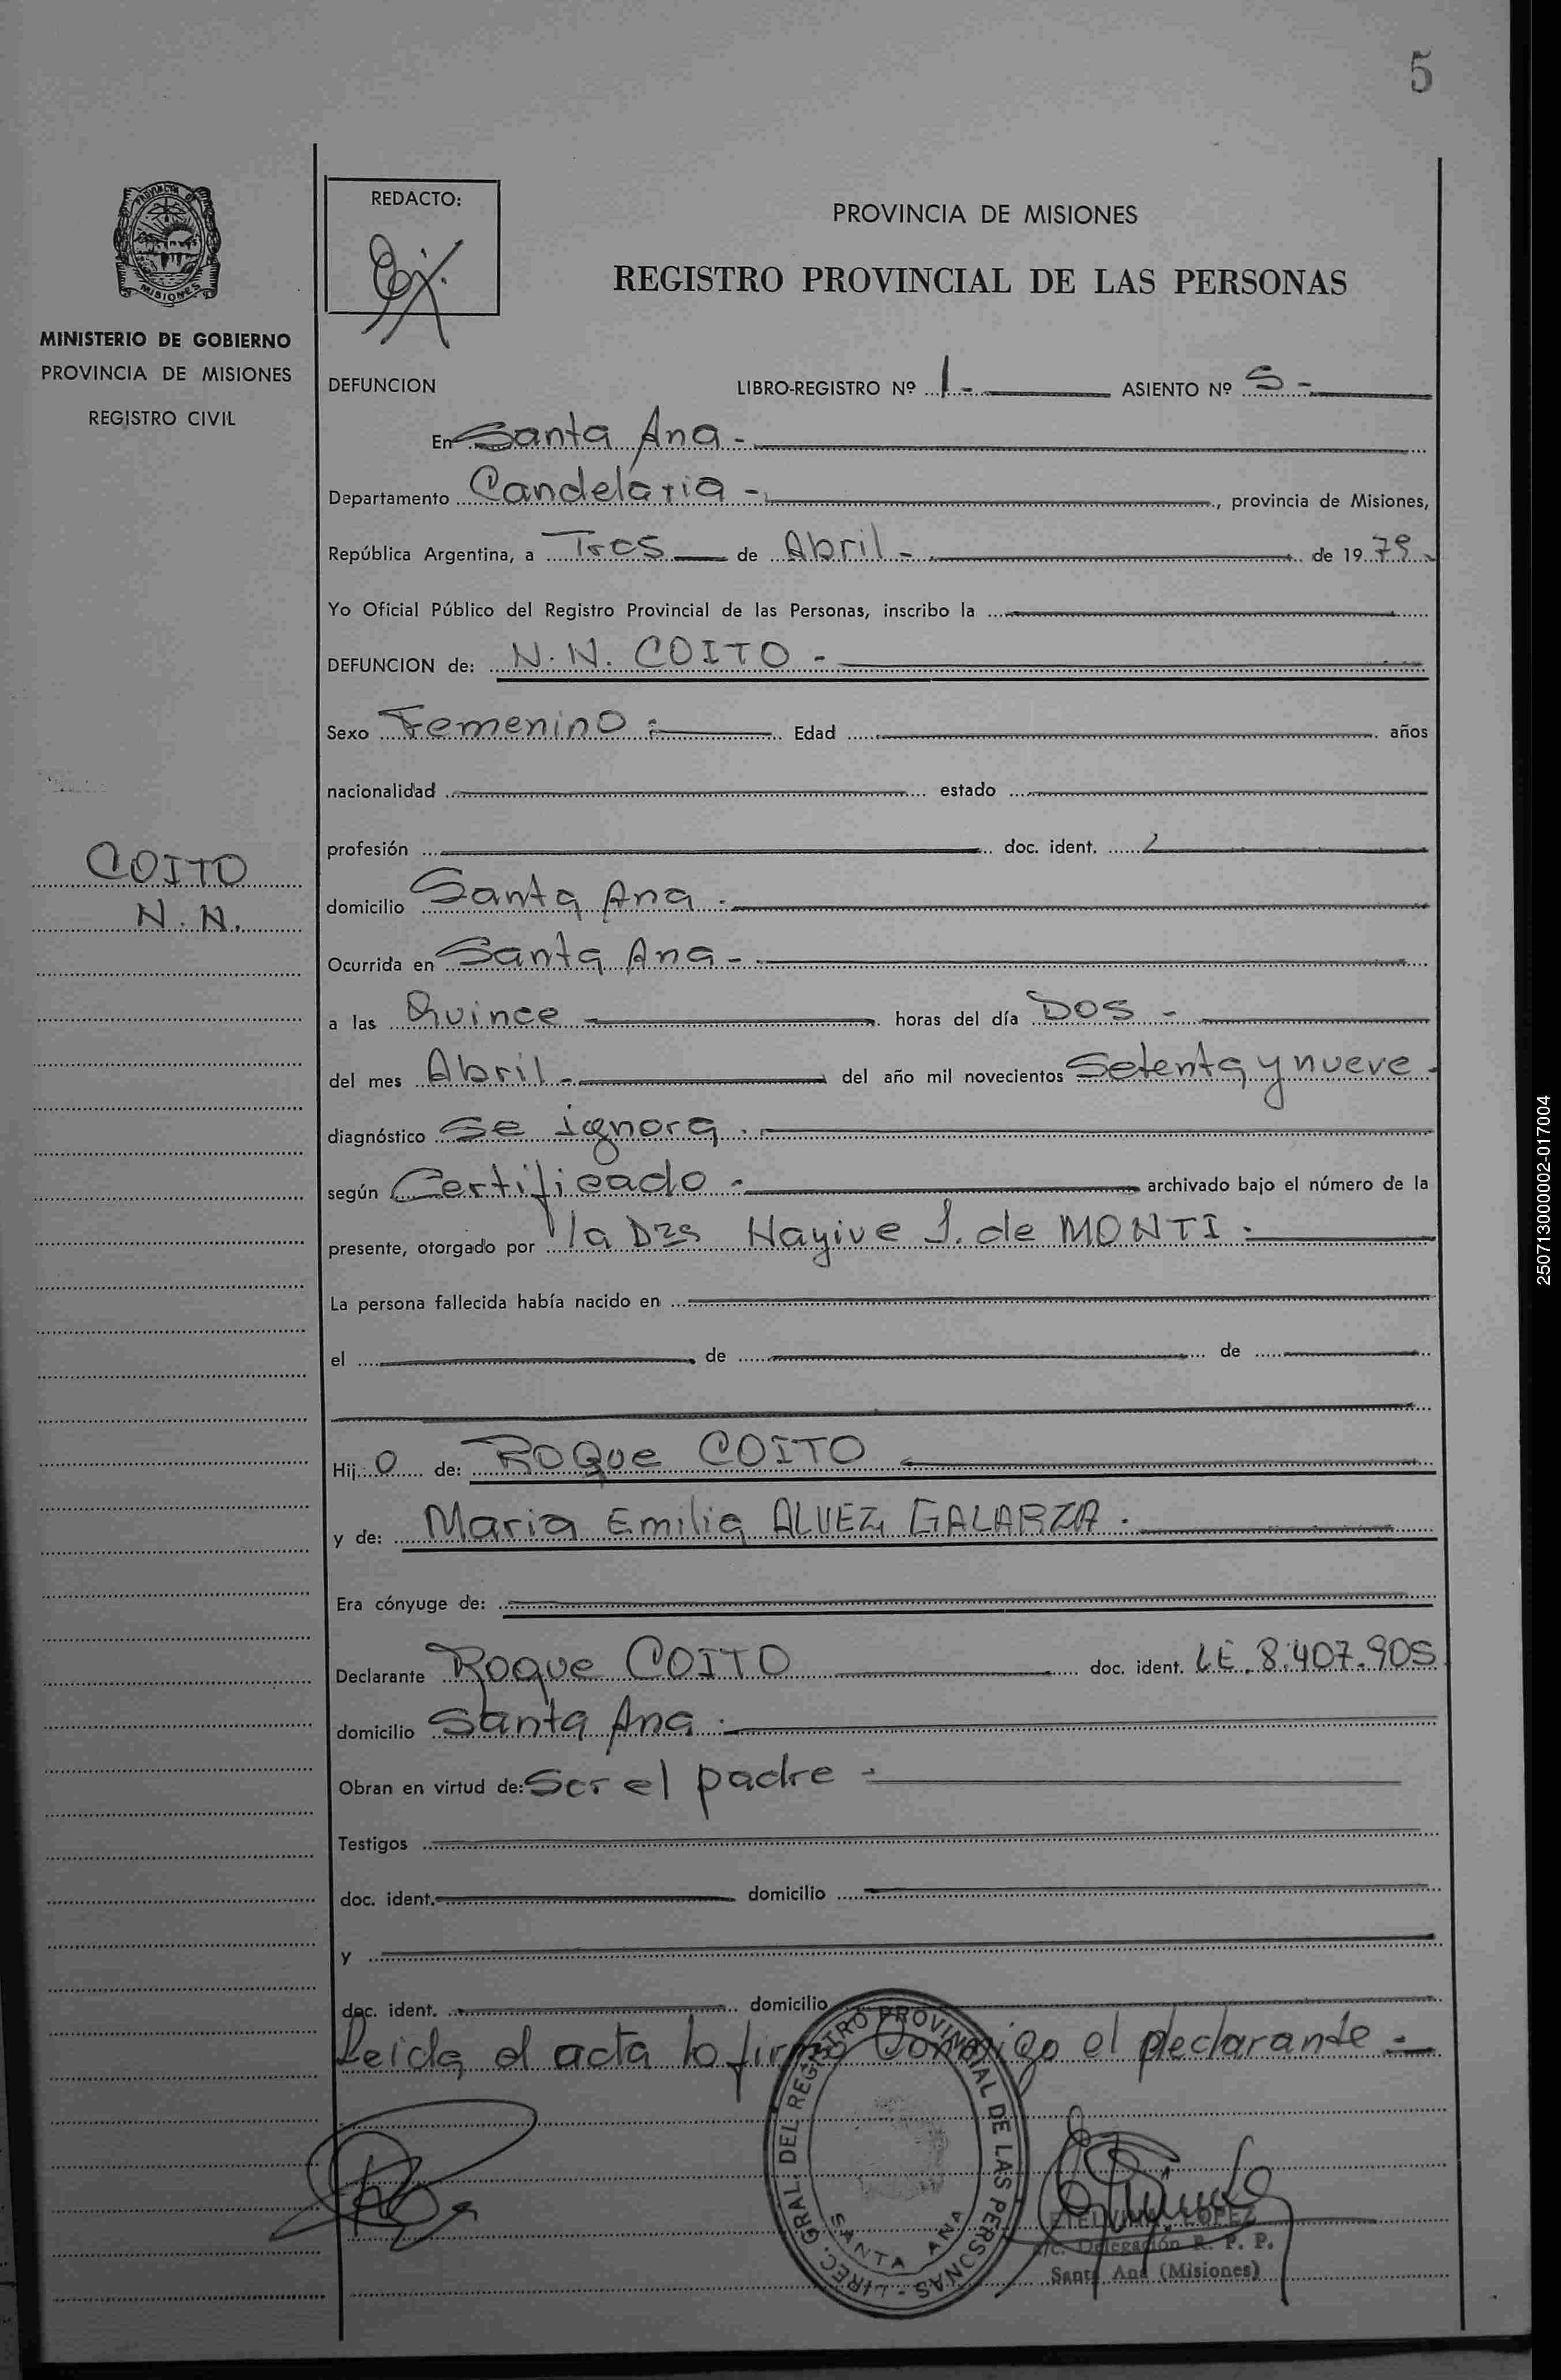 5
PROVINCIA DE MISIONES
MINISTERIO DE GOBIERNO
PROVINCIA DE MISIONES
REGISTRO CIVIL
COITO
N.N.
REDACTO:
PROVINCIA DE MISIONES
REGISTRO PROVINCIAL DE LAS PERSONAS
DEFUNCION LIBRO-REGISTRO Nº 1- ASIENTO Nº 5-
En Santa Ana-
Departamento Candelaria-, provincia de Misiones,
República Argentina, a Tres de Abril- de 1979.
Yo Oficial Público del Registro Provincial de las Personas, inscribo la
DEFUNCION de: N.N. COITO-
Sexo Femenino Edad años
nacionalidad estado
profesión doc. ident.
domicilio Santa Ana
Ocurrida en Santa Ana-
a las Quince horas del día Dos-
del mes Abril- del año mil novecientos Setenta y nueve-
diagnóstico Se ignora.
según Certificado- archivado bajo el número de la
presente, otorgado por la Dra Nayive J. de MONTI.
La persona fallecida había nacido en
el de de
Hijo de: Roque COITO
y de: Maria Emilia ALVEZ GALARZA.
Era cónyuge de:
Declarante Roque COITO doc. ident. LE. 8.407.905
domicilio Santa Ana.
Obran en virtud de: Ser el padre-
Testigos
doc. ident. domicilio
y
doc. ident. domicilio
Leida el acta lo firma Conmigo el declarante-
DIREC. GRAL. DEL REGISTRO PROVINCIAL DE LAS PERSONAS -
SANTA ANA
LOPEZ
Delegación R. P. P.
Santa Ana (Misiones)
25071300002-017004